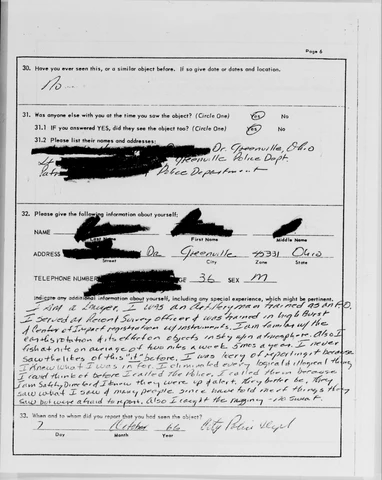 Page 6
30. Have you ever seen this, or a similar object before. If so give date or dates and location.
No
31. Was anyone else with you at the time you saw the object? (Circle One) Yes No
31.1 IF you answered YES, did they see the object too? (Circle One) Yes No
31.2 Please list their names and addresses:
Dr. Greenville, Ohio
Lt Greenville Police Dept.
Patr Police Department
32. Please give the following information about yourself:
NAME
First Name Middle Name
ADDRESS Dr Greenville 45331 Ohio
Street City Zone State
TELEPHONE NUMBER AGE 36 SEX M
Indicate any additional information about yourself, including any special experience, which might be pertinent.
I Am a I was an Artilleryman trained as an F.O.
I served as Recent Survey officer & was trained in high Burst
& Center of Impact registration w/instruments. I am familiar w/the
earths rotation & its effect on objects in sky up in atmosphere. Also I
fish at nite on average of two nites a week 5 mos a year. I never
saw the likes of this "it" before. I was leery of reporting it because
I knew what I was in for. I eliminated every logical & illogical thing
I could think of before I called the Police, I called them because
I am Safety Director & I knew they were up & alert. They they
saw what I saw & many people since have told me of things they
saw but were afraid to report, Also I caught the razzing - no sweat.
33. When and to whom did you report that you had seen the object?
7 October 66 City Police Dept
Day Month Year